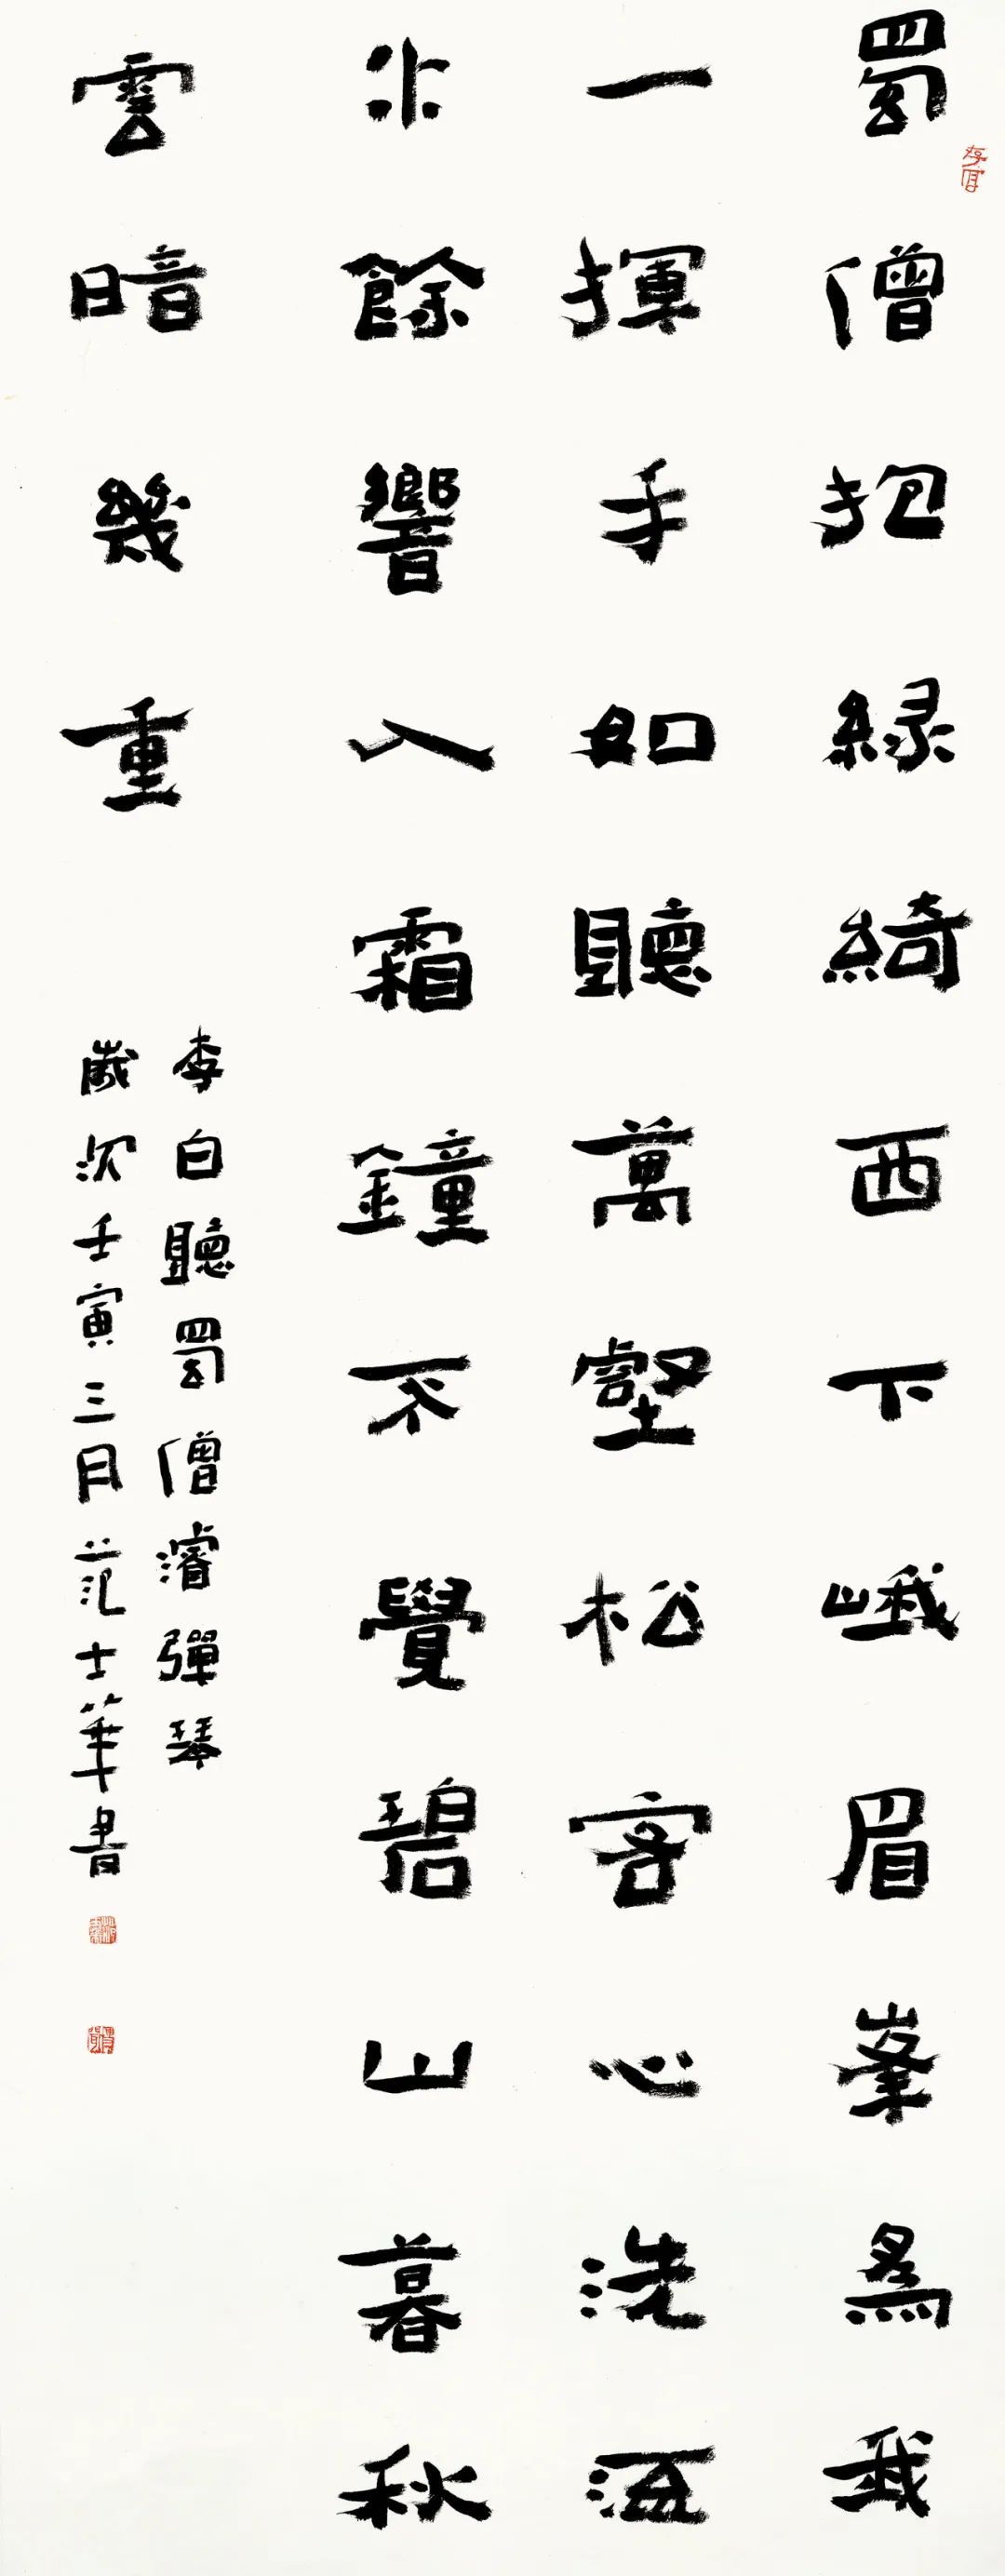 蜀僧抱緑綺西下峨眉峯為我
一揮手如聽萬壑松客心洗流
水餘響入霜鐘不覺碧山暮秋
雲暗幾重
李白聽蜀僧濬彈琴
歲次壬寅三月范士華書